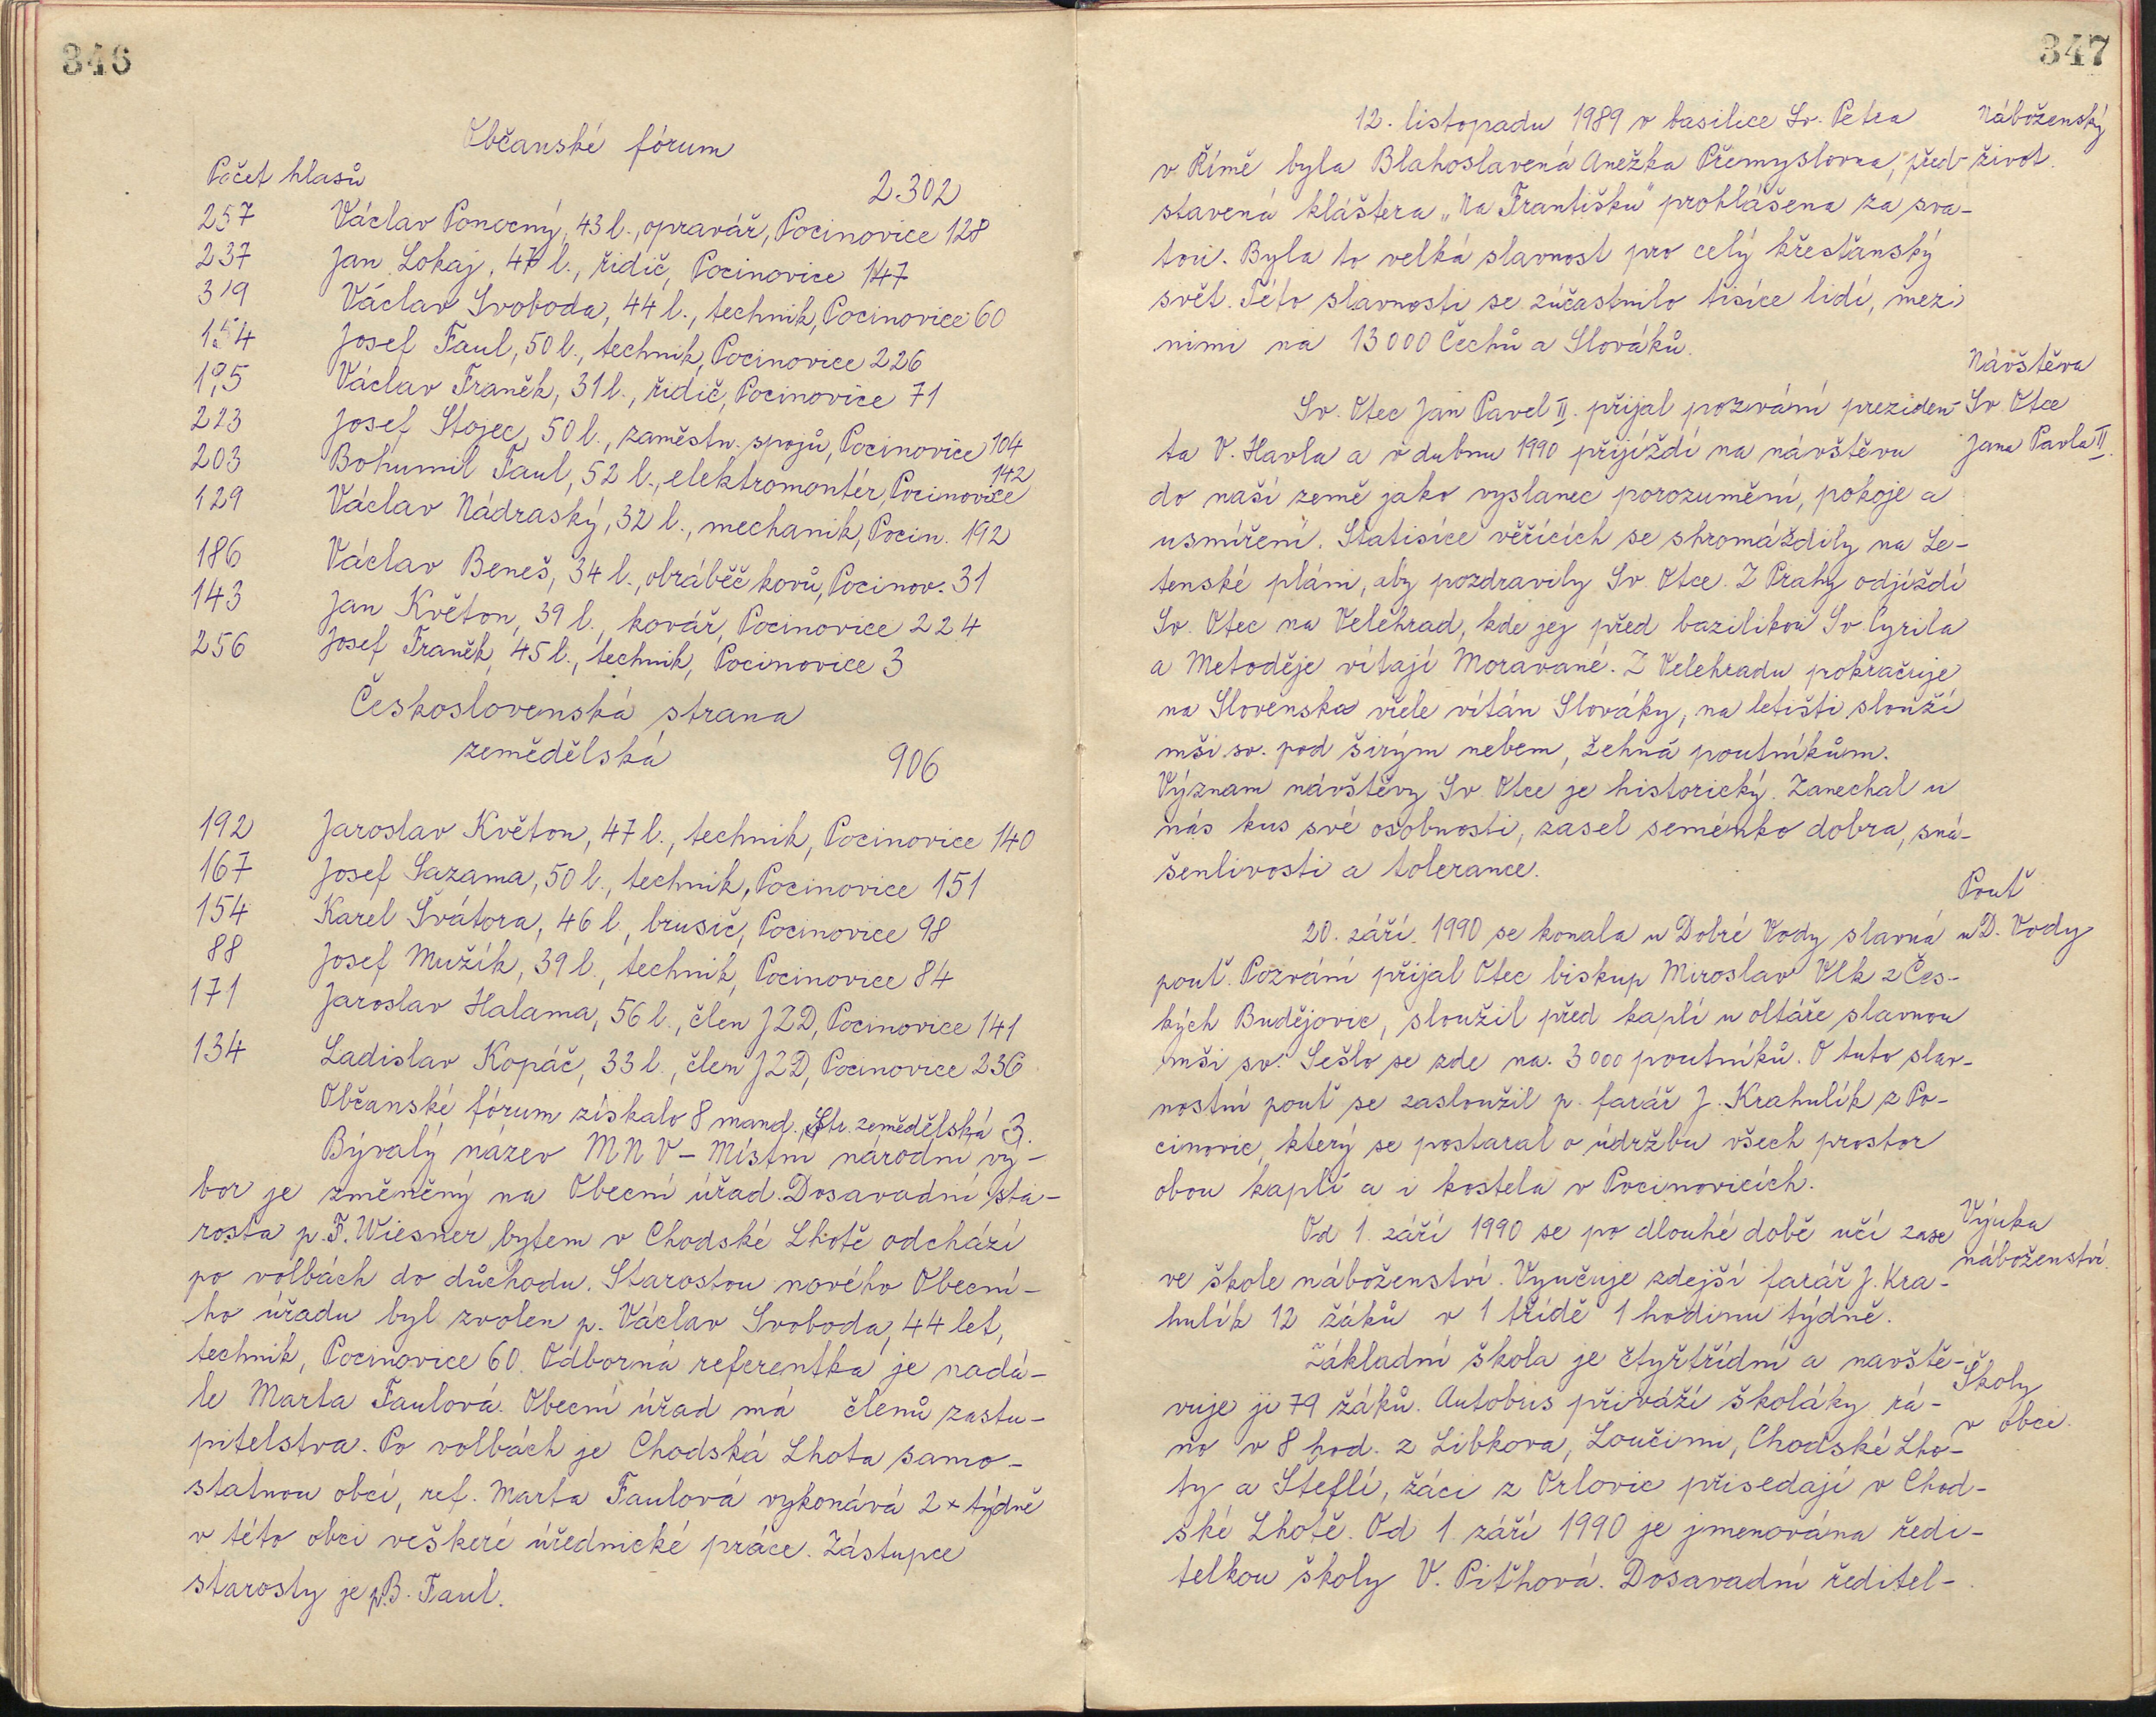 346
Občanské fórum
Počet hlasů 2.302
257 Václav Ponocný, 43 l., opravář, Pocinovice 128
237 Jan Lokaj, 47 l., řidič, Pocinovice 147
319 Václav Svoboda, 44 l., technik, Pocinovice 60
154 Josef Faul, 50 l., technik, Pocinovice 226
195 Václav Franěk, 31 l., řidič, Pocinovice 71
223 Josef Stojec, 50 l., zaměstn. spojů, Pocinovice 104
203 Bohumil Faul, 52 l., elektromontér, Pocinovice 142
129 Václav Nádraský, 32 l., mechanik, Pocin. 192
186 Václav Beneš, 34 l., obráběč kovů, Pocinov. 31
143 Jan Květon, 39 l., kovář, Pocinovice 224
256 Josef Franěk, 45 l., technik, Pocinovice 3
Československá strana
zemědělská 906
192 Jaroslav Květon, 47 l., technik, Pocinovice 140
167 Josef Sazama, 50 l., technik, Pocinovice 151
154 Karel Švátora, 46 l., brusič, Pocinovice 98
88 Josef Mužík, 39 l., technik, Pocinovice 84
171 Jaroslav Halama, 56 l., člen JZD, Pocinovice 141
134 Ladislav Kopáč, 33 l., člen JZD, Pocinovice 236
Občanské fórum získalo 8 mand., Str. zemědělská 3.
Bývalý název MNV – Místní národní vý-
bor je změněný na Obecní úřad. Dosavadní sta-
rosta p. F. Wiesner bytem v Chodské Lhotě odchází
po volbách do důchodu. Starostou nového Obecní-
ho úřadu byl zvolen p. Václav Svoboda, 44 let,
technik, Pocinovice 60. Odborná referentka je nadá-
le Marta Faulová. Obecní úřad má členů zastu-
pitelstva. Po volbách je Chodská Lhota samo-
statnou obcí, ref. Marta Faulová vykonává 2 x týdně
v této obci veškeré úřednické práce. Zástupce
starosty je p. B. Faul.
347
Náboženský
život.
12. listopadu 1989 v basilice Sv. Petra
v Římě byla Blahoslavená Anežka Přemyslovna, před-
stavená kláštera „Na Františku" prohlášena za sva-
tou. Byla to velká slavnost pro celý křesťanský
svět. Této slavnosti se zúčastnilo tisíce lidí, mezi
nimi na 13 000 Čechů a Slováků.
Návštěva
Sv. Otce
Jana Pavla II.
Sv. Otec Jan Pavel II. přijal pozvání preziden-
ta V. Havla a v dubnu 1990 přijíždí na návštěvu
do naší země jako vyslanec porozumění, pokoje a
usmíření. Statisíce věřících se shromáždily na Le-
tenské pláni, aby pozdravily Sv. Otce. Z Prahy odjíždí
Sv. Otec na Velehrad, kde jej před bazilikou Sv. Cyrila
a Metoděje vítají Moravané. Z Velehradu pokračuje
na Slovensko vřele vítán Slováky, na letišti slouží
mši sv. pod širým nebem, žehná poutníkům.
Význam návštěvy Sv. Otce je historický. Zanechal u
nás kus své osobnosti, zasel semínko dobra, sná-
šenlivosti a tolerance.
Pouť
u D. Vody
20. září 1990 se konala u Dobré Vody slavná
pouť. Pozvání přijal Otec biskup Miroslav Vlk z Čes-
kých Budějovic, sloužil před kaplí u oltáře slavnou
mši sv. Sešlo se zde na 3 000 poutníků. O tuto slav-
nostní pouť se zasloužil p. farář J. Krahulík z Po-
cinovic, který se postaral o údržbu všech prostor
obou kaplí a i kostela v Pocinovicích.
Výuka
náboženství.
Od 1. září 1990 se po dlouhé době učí zase
ve škole náboženství. Vyučuje zdejší farář J. Kra-
hulík 12 žáků v 1 třídě 1 hodinu týdně.
Školy
v obci.
Základní škola je čtyřtřídní a navště-
vuje ji 79 žáků. Autobus přiváží školáky rá-
no v 8 hod. z Libkova, Loučimi, Chodské Lho-
ty a Šteflí, žáci z Orlovic přisedají v Chod-
ské Lhotě. Od 1. září 1990 je jmenována ředi-
telkou školy V. Piťhová. Dosavadní ředitel-